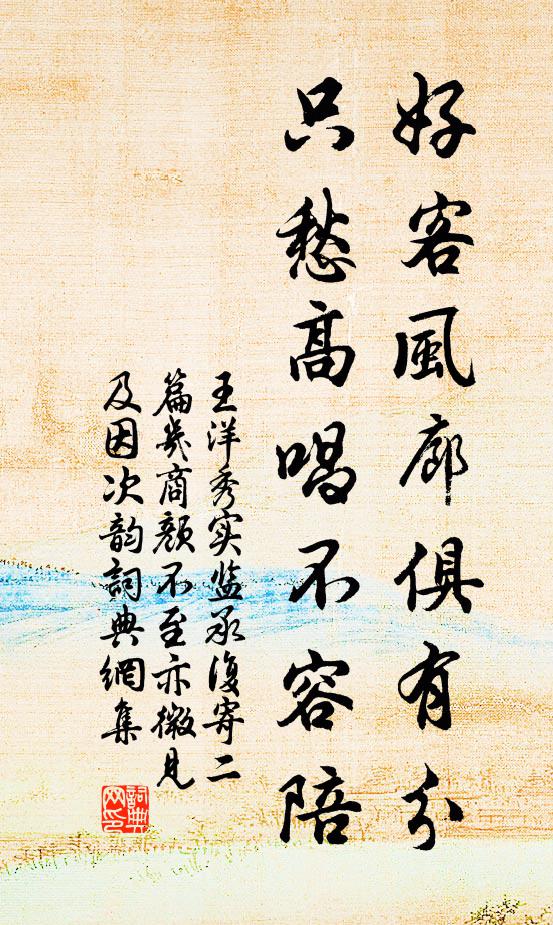 好客風廊俱有分
只愁高唱不容陪
王洋秀实监丞復寄二
篇歎商顏不至亦微見
及因次韵詞典網集
詞典
网印